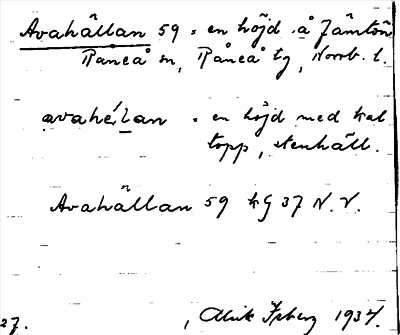 Avahällan 59 = en höjd å Jämtön
Råneå sn, Råneå tg, Norrb. l.
avahél̀an = en höjd med kal
topp, stenhäll.
Avahällan 59 kG 37 N.V.
27. , Alrik 1937.